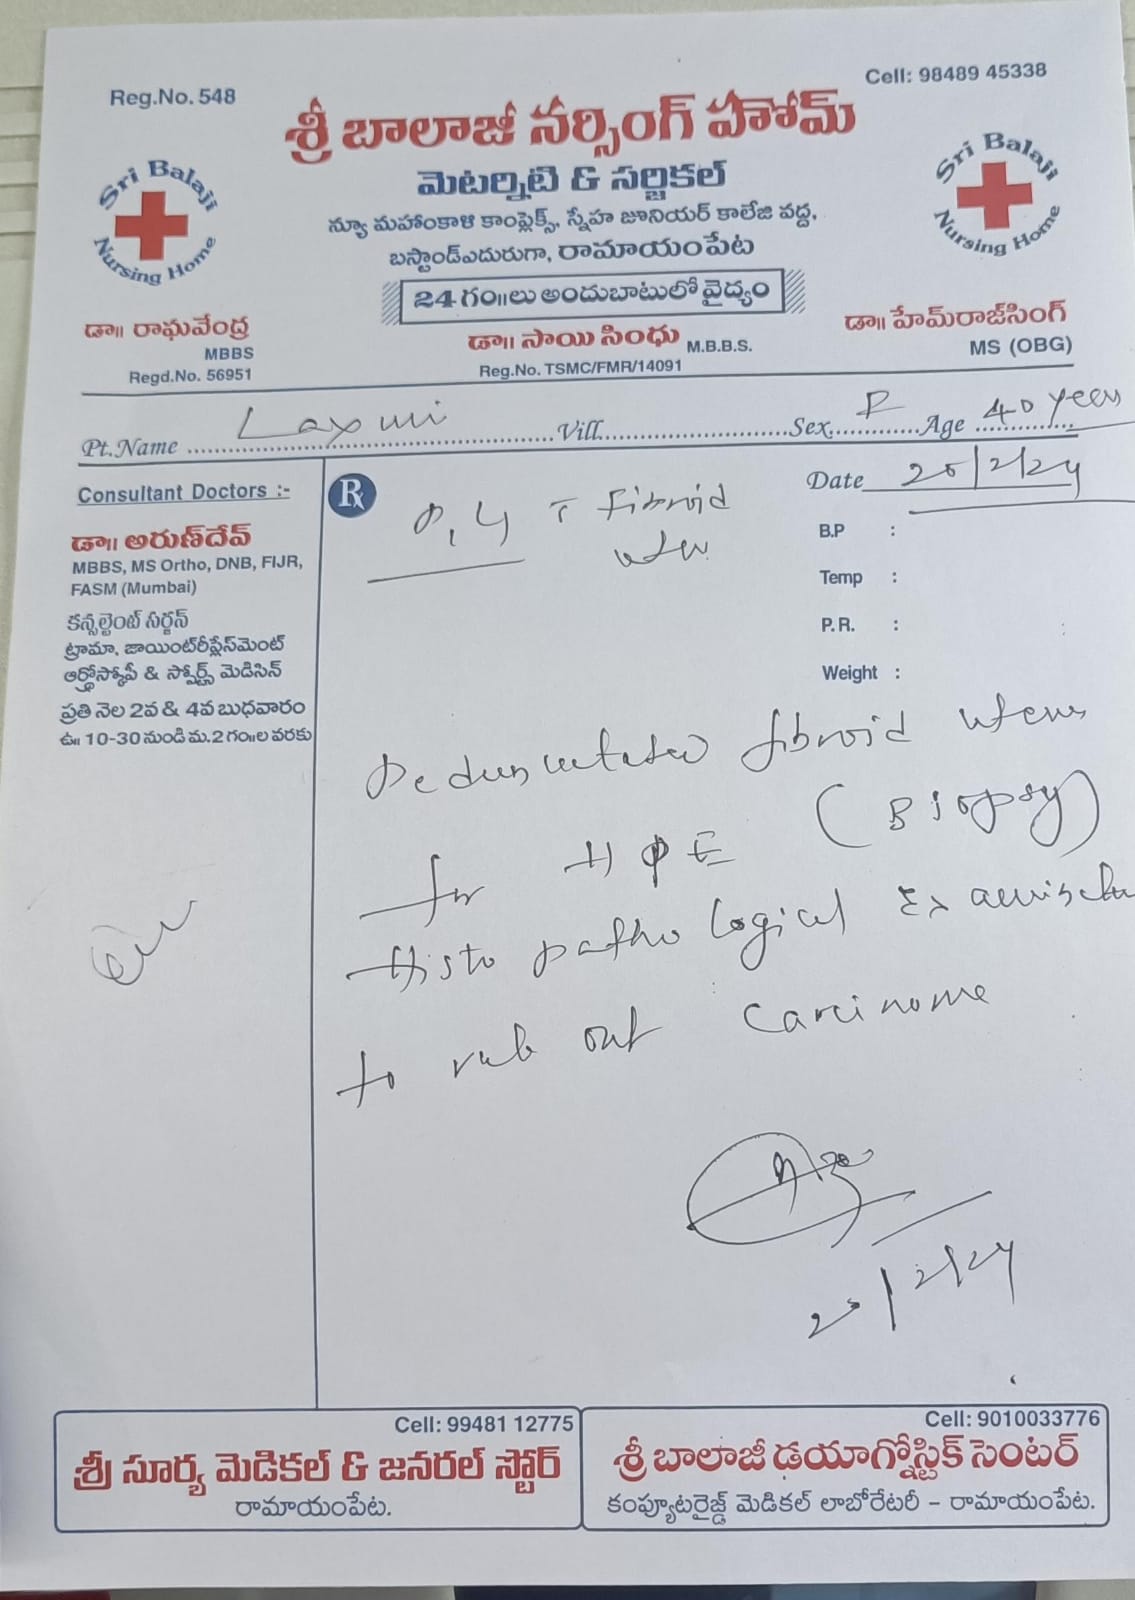 Reg.No. 548
Cell: 98489 45338
శ్రీ బాలాజీ నర్సింగ్ హోమ్
Sri Balaji Nursing Home
మెటర్నిటి & సర్జికల్
Sri Balaji Nursing Home
న్యూ మహంకాళి కాంప్లెక్స్, స్నేహ జూనియర్ కాలేజి వద్ద,
బస్టాండ్ఎదురుగా, రామాయంపేట
24 గం॥లు అందుబాటులో వైద్యం
డా॥ రాఘవేంద్ర
MBBS
Regd.No. 56951
డా॥ సాయి సింధు M.B.B.S.
Reg.No. TSMC/FMR/14091
డా॥ హేమ్‌రాజ్‌సింగ్
MS (OBG)
Pt.Name Laxmi Vill. Sex F Age 40 years
Consultant Doctors :-
డా॥ అరుణ్‌దేవ్
MBBS, MS Ortho, DNB, FIJR,
FASM (Mumbai)
కన్సల్టెంట్ సర్జన్
ట్రామా, జాయింట్‌రీప్లేస్‌మెంట్
ఆర్థ్రోస్కోపీ & స్పోర్ట్స్ మెడిసిన్
ప్రతి నెల 2వ & 4వ బుధవారం
ఉ॥ 10-30 నుండి మ.2 గం॥ల వరకు
Rx
Date 20/2/24
Fibroid
B.P :
Temp :
P.R. :
Weight :
Pedunculated fibroid uterus
for HPE (Biopsy)
Histo pathological Examination
to rule out Carcinoma
20/2/24
Cell: 99481 12775
శ్రీ సూర్య మెడికల్ & జనరల్ స్టోర్
రామాయంపేట.
Cell: 9010033776
శ్రీ బాలాజీ డయాగ్నోస్టిక్ సెంటర్
కంప్యూటరైజ్డ్ మెడికల్ లాబోరేటరీ – రామాయంపేట.